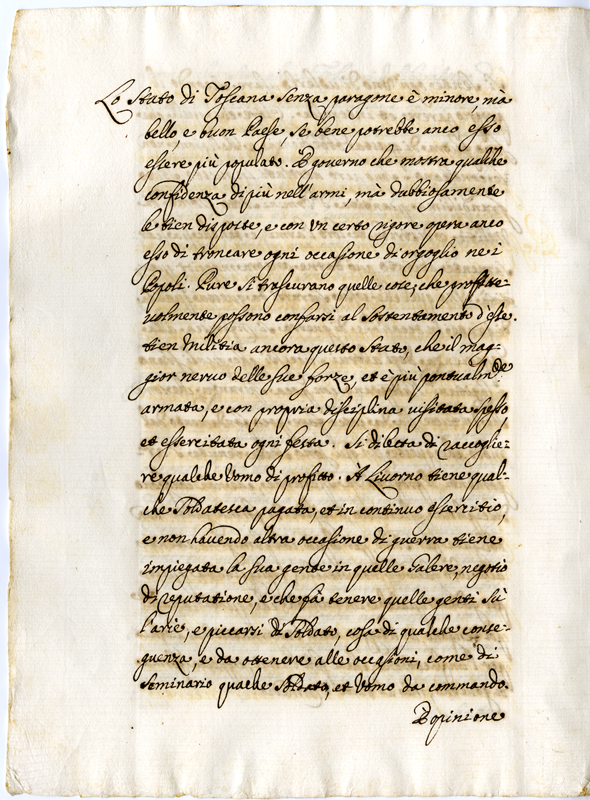 Lo Stato di Toscana senza paragone è minore, mà
bello, e buon Paese, se bene potrebbe anco esso
essere più populato. È governo che mostra qualche
confidenza di più nell'armi, mà dubbiosamente
le tien disposte, e con un certo rigore opera anco
esso di troncare ogni occasione di orgoglio ne i
Popoli. Pure si trascurano quelle cose, che profitte-
uolmente possono confarsi al sostentamento d'esse.
tien Militia ancora questo Stato, che il mag-
gior neruo delle sue forze, et è più pontualmde
armata, e con propria disciplina uisitata spesso,
et essercitata ogni festa. Si diletta di raccoglie-
re qualche Uomo di profitto. À Liuorno tiene qual-
che Soldatesca pagata, et in continuo essercitio,
e non hauendo altra occasione di guerra tiene
impiegata la sua gente in quelle Galere, negotio
di reputatione, e che fà tenere quelle genti sù
l'arie, e piccarsi di Soldato, cosa di qualche conse-
guenza, e da ottenere alle occasioni, come di
seminario qualche Soldato, et Uomo da commando.
È opinione